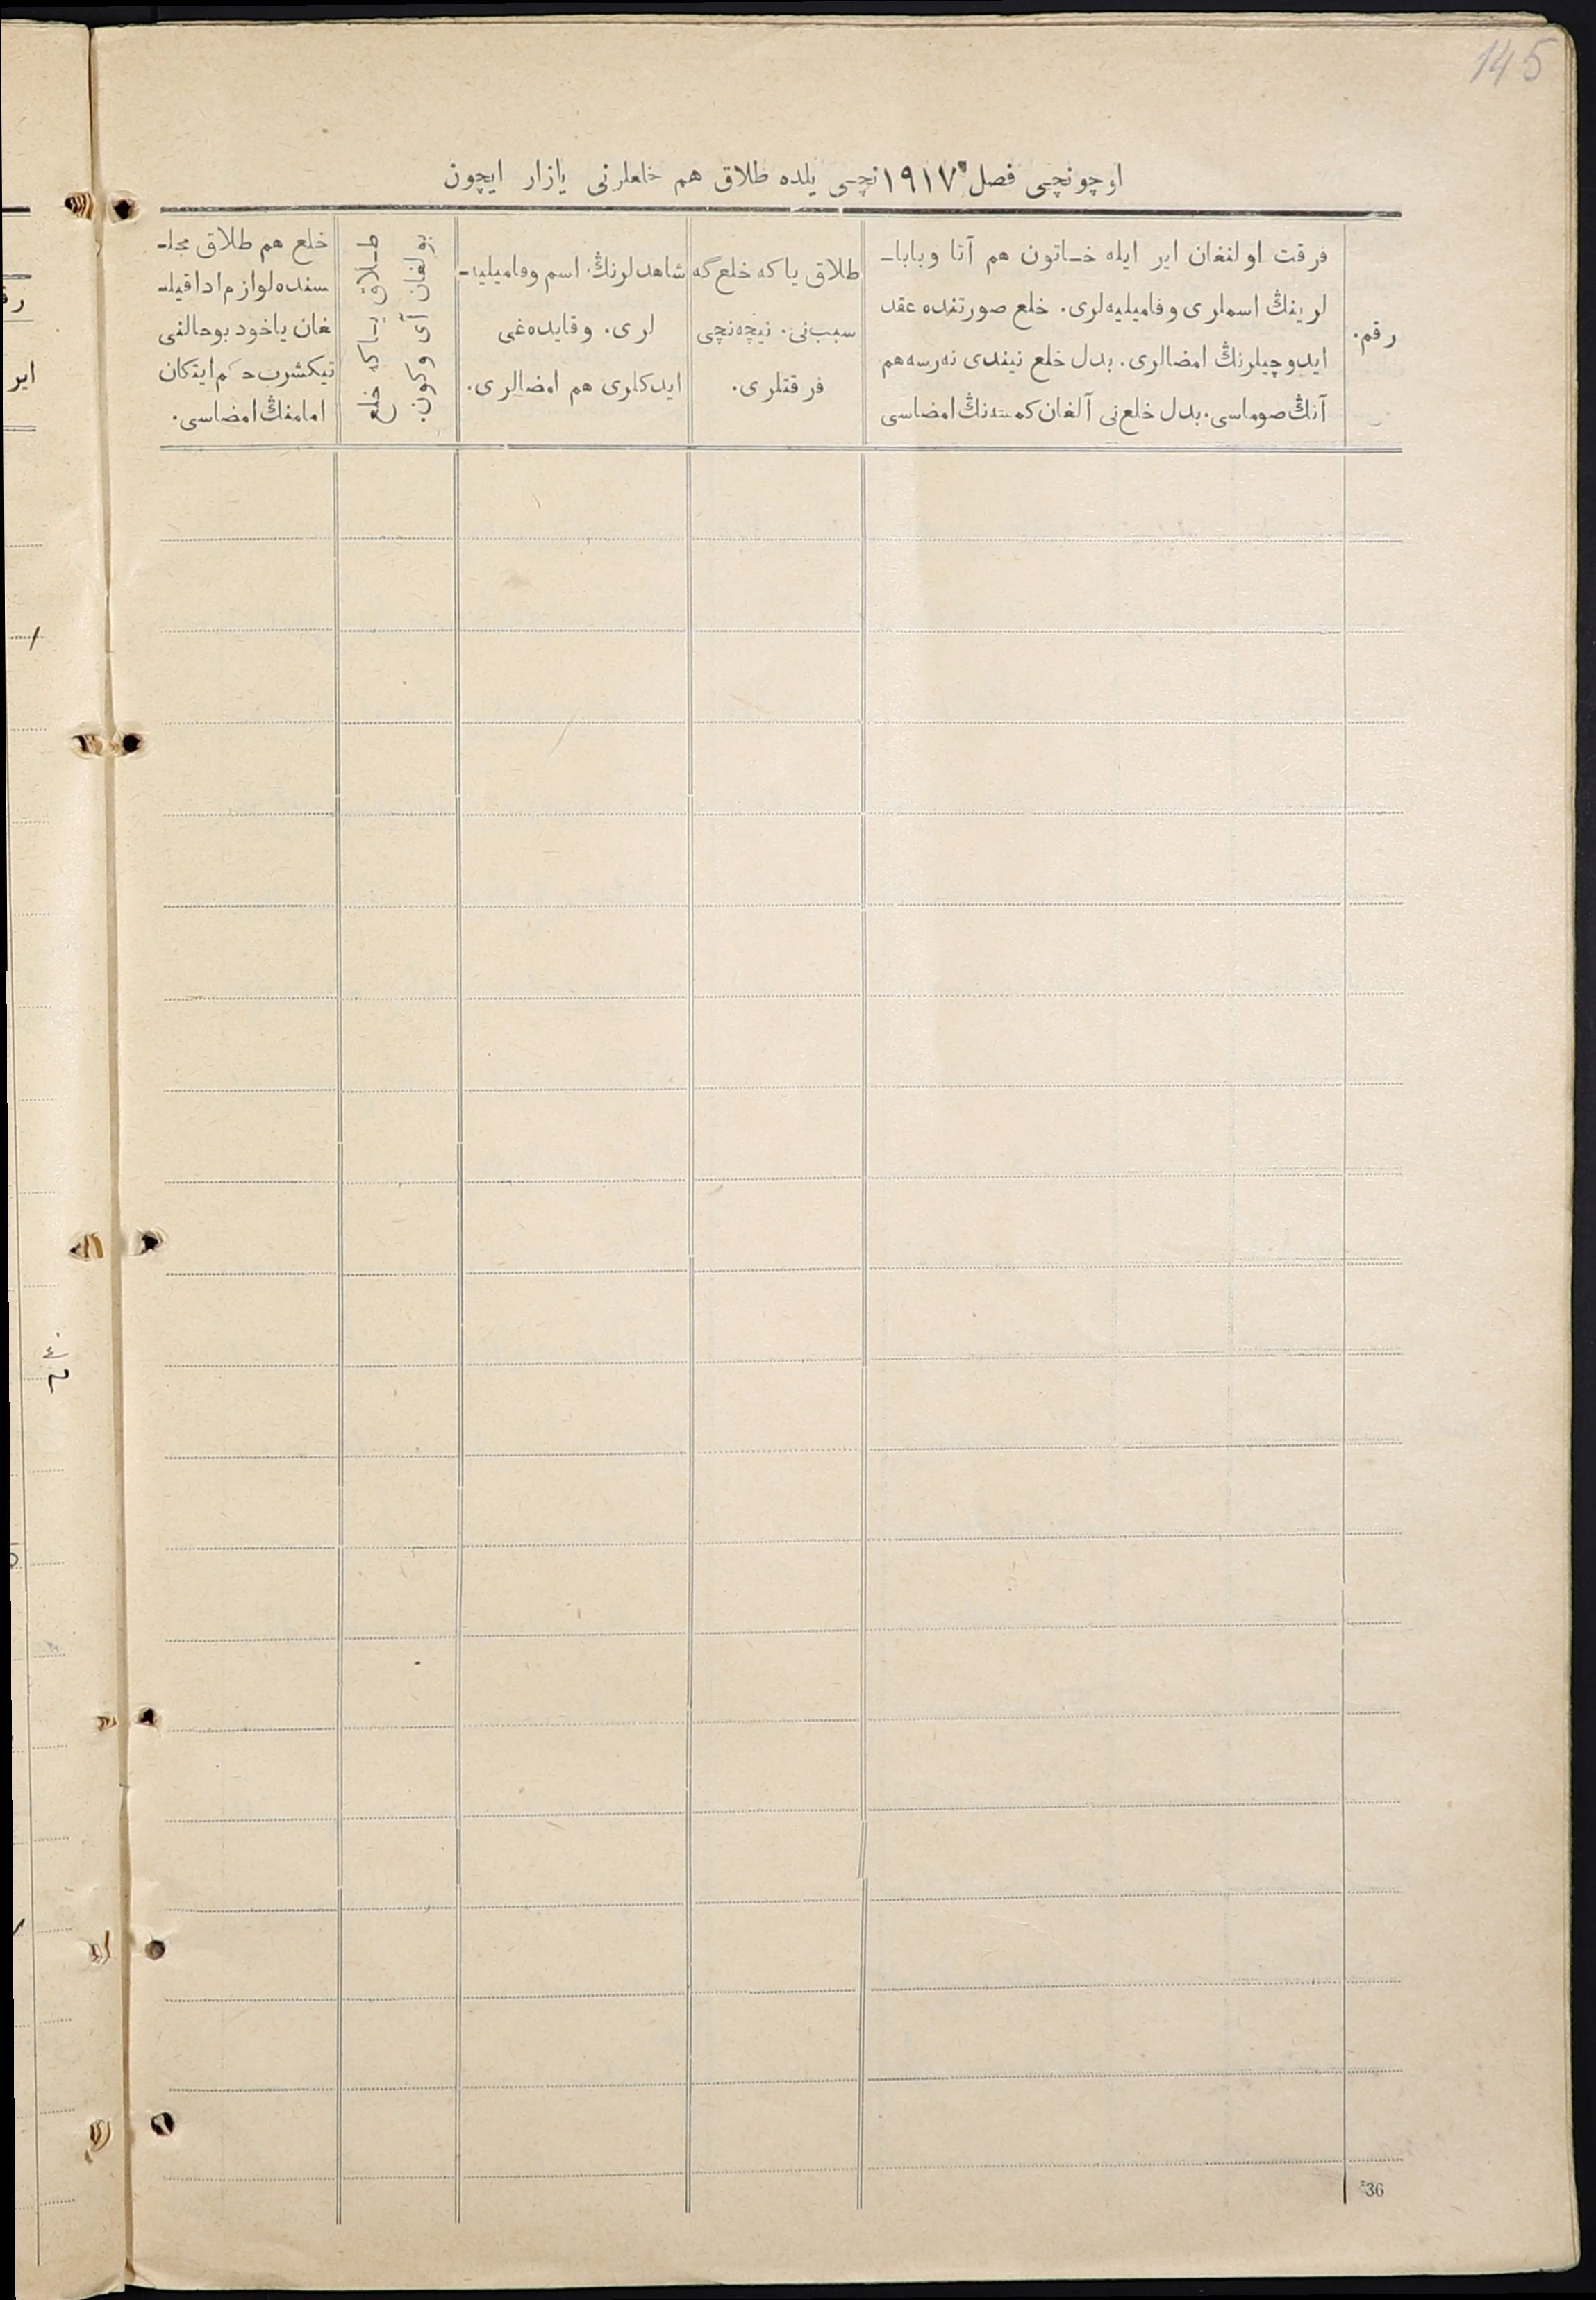 145
اوچونچی فصل ۱۹۱۷ نچی یلده طلاق هم خلعلرنی یازار ایچون
رقم.
فرقت اولنغان ایر ایله خـاتون هم آتا وبابا-
لرینڭ اسملری وفامیلیه‌لری. خلع صورتنده عقد
ایدوچیلرنڭ امضالری. بدل خلع نیندی نه‌رسه هم
آنڭ صوماسی. بدل خلع‌نی آلغان کمسنه‌نڭ امضاسی
طلاق یا که خلع گه
سبب‌نی. نیچه‌نچی
فرقتلری.
شاهدلرنڭ اسم وفامیلیه-
لری. وقایده‌غی
ایدکلری هم امضالری.
طـلاق یـاکه خلع
بولغان آی وکون.
خلع هم طلاق مجلـ
سنده لوازم ادا قیلـ
غان یاخود بوحالنی
تیکشرب حکم ایتکان
امامنڭ امضاسی.
36
ایر